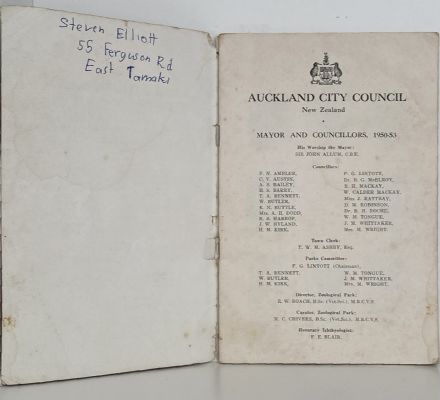 Steven Elliott
55 Ferguson Rd
East Tamaki
AUCKLAND CITY COUNCIL
New Zealand
MAYOR AND COUNCILLORS, 1950-53
His Worship the Mayor:
SIR JOHN ALLUM, C.B.E.
Councillors:
F. N. AMBLER,
C. V. AUSTIN,
A. S. BAILEY,
H. S. BARRY,
T. A. BENNETT,
W. BUTLER,
K. N. BUTTLE,
Mrs. A. H. DODD,
R. S. HARROP,
J. W. HYLAND,
H. M. KIRK,
F. G. LINTOTT,
Dr. R. G. McELROY,
R. H. MACKAY,
W. CALDER MACKAY,
Miss J. RATTRAY,
D. M. ROBINSON,
Dr. R. H. ROCHE,
W. M. TONGUE,
J. M. WHITTAKER,
Mrs. M. WRIGHT.
Town Clerk:
T. W. M. ASHBY, Esq.
Parks Committee:
F. G. LINTOTT (Chairman),
T. A. BENNETT,
W. BUTLER,
H. M. KIRK,
W. M. TONGUE,
J. M. WHITTAKER,
Mrs. M. WRIGHT.
Director, Zoological Park:
R. W. ROACH, B.Sc. (Vet.Sci.), M.R.C.V.S.
Curator, Zoological Park:
N. C. CHIVERS, B.Sc. (Vet.Sci.), M.R.C.V.S.
Honorary Ichthyologist:
F. E. BLAIR.